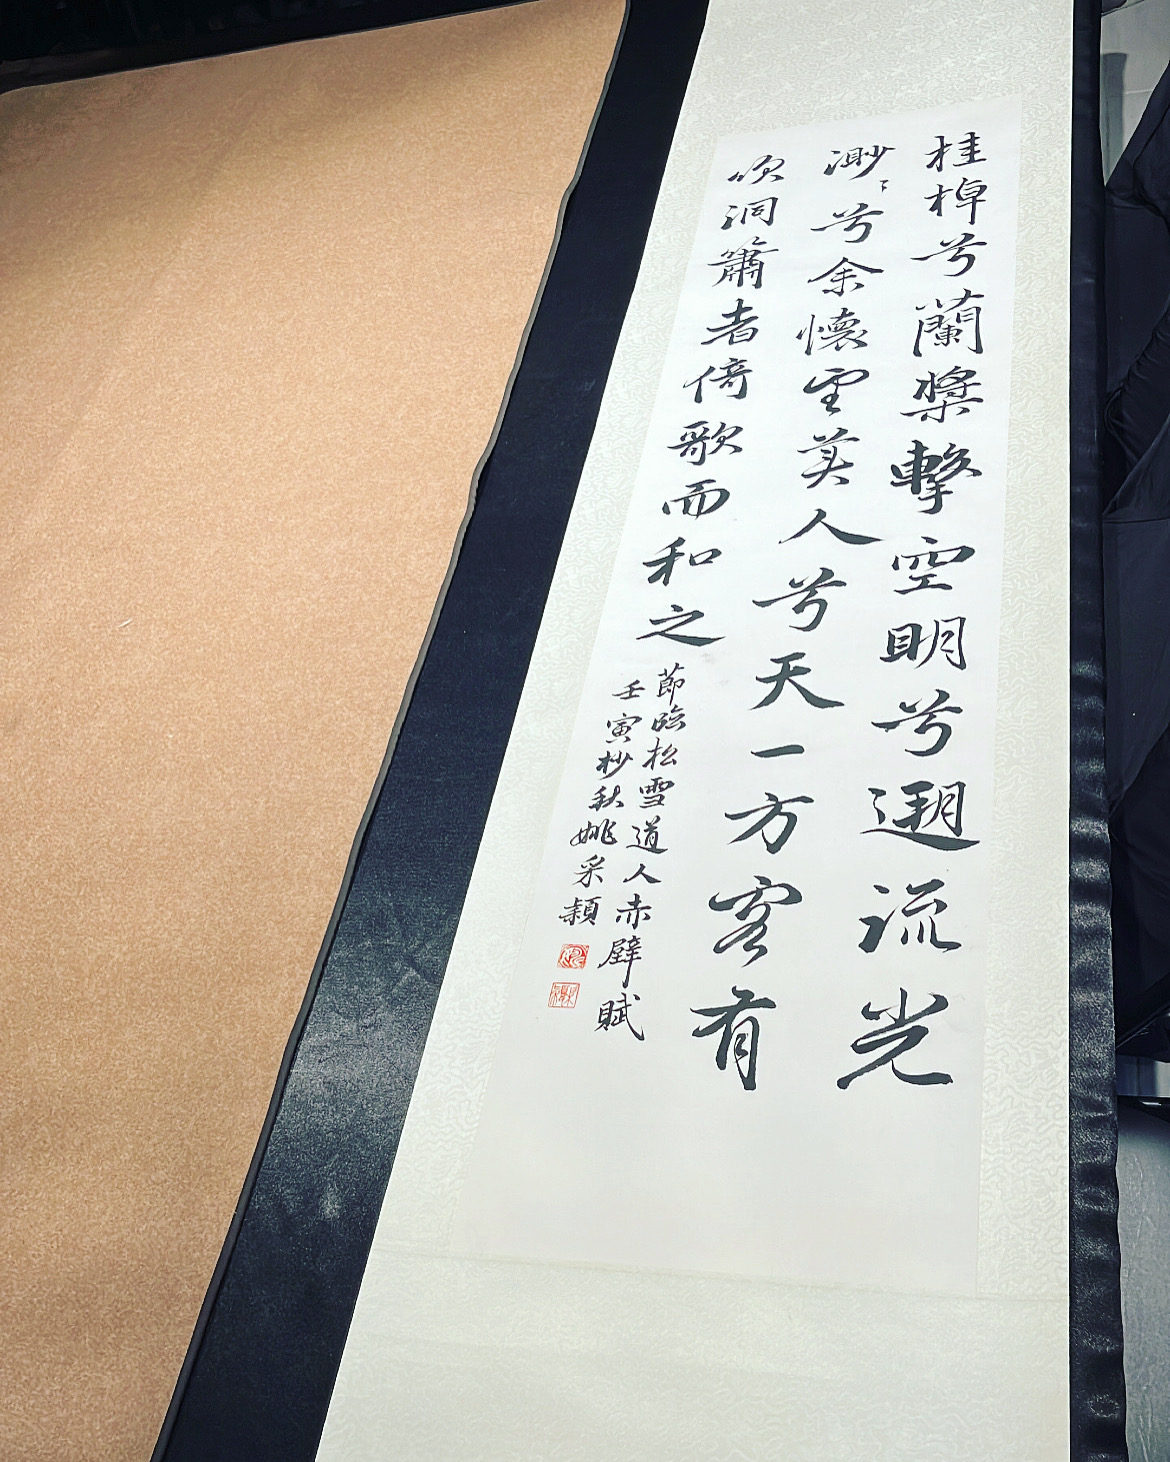 桂棹兮蘭槳擊空明兮遡流光
渺〻兮余懷望美人兮天一方客有
吹洞簫者倚歌而和之
節臨松雪道人赤壁賦
壬寅杪秋姚采穎